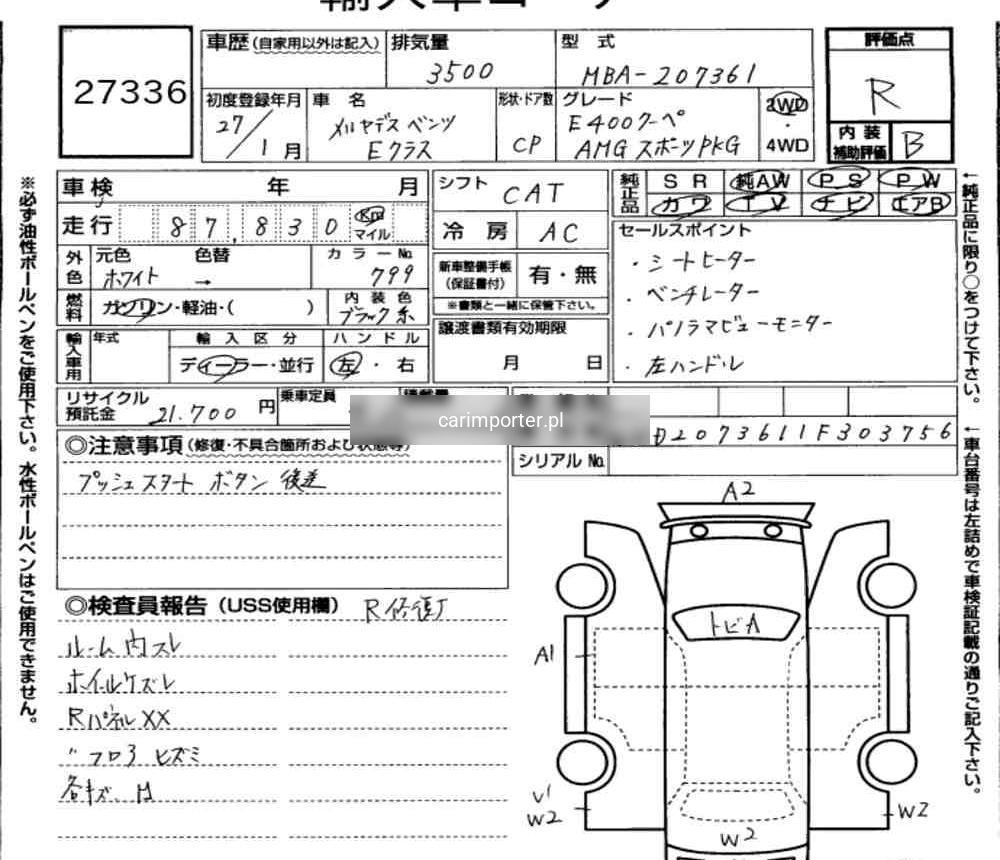 27336
車歴(自家用以外は記入)
排気量
3500
型 式
MBA-207361
評価点
R
初度登録年月
27/1月
車 名
メルセデスベンツ
Eクラス
形状・ドア数
CP
グレード
E400クーペ
AMG スポーツPKG
2WD
・
4WD
内 装
補助評価
B
車 検 年 月
走 行 87,830 Km
マイル
外色
元色
ホワイト
色替
→
カラーNo.
799
燃料
ガソリン・軽油・( )
内 装 色
ブラック系
輸入車用
年式
輸 入 区 分
ディーラー・並行
ハ ン ド ル
左・右
シフト
CAT
冷 房
AC
新車整備手帳
(保証書付)
有・無
※書類と一緒に保管下さい。
譲渡書類有効期限
月 日
純正品
S R 純AW P S P W
カワ T V ナビ エアB
セールスポイント
・シートヒーター
・ベンチレーター
・パノラマビューモニター
・左ハンドル
リサイクル
預託金
21.700 円
乗車定員
carimporter.pl
D2073611F303756
シリアルNo.
◎注意事項(修復・不具合箇所および状態等)
プッシュスタート ボタン 後送
◎検査員報告(USS使用欄)
ルーム内スレ
ホイールケズレ
RパネルXX
〃フロア ヒズミ
各キズ、凹
A2
トビA
A1
U1
W2
W2
W2
※必ず油性ボールペンをご使用下さい。水性ボールペンはご使用できません。
←純正品に限り○をつけて下さい。
←車台番号は左詰めで車検証記載の通りご記入下さい。